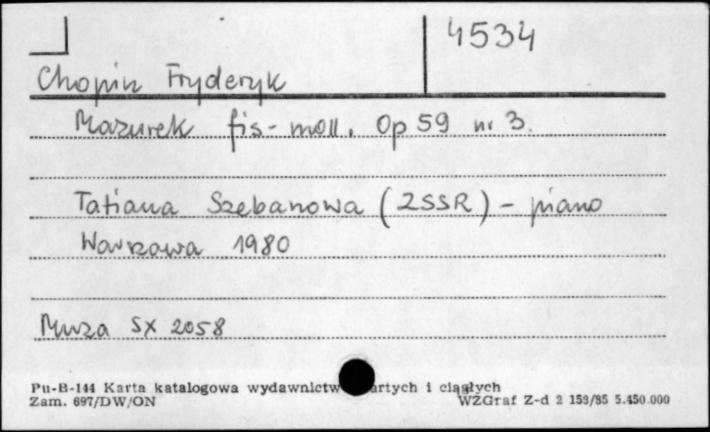 4534
Chopin Fryderyk
Mazurek fis-moll. Op 59 nr 3.
Tatiana Szebanowa (ZSSR) - piano
Warszawa 1980
Muza SX 2058
Pu-B-144 Karta katalogowa wydawnictw artych i ciągłych
Zam. 697/DW/ON WZGraf Z-d 2 153/85 5.450.000